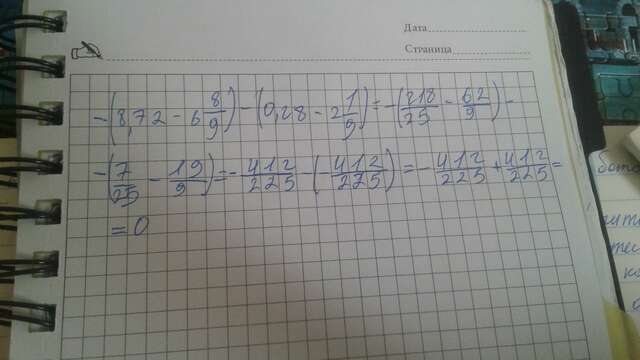 Дата
Страница
-(8,72 - 6 8/9) - (0,28 - 2 1/9) = -(218/25 - 62/9) -
-(7/25 - 19/9) = - 412/225 - (- 412/225) = - 412/225 + 412/225 =
= 0